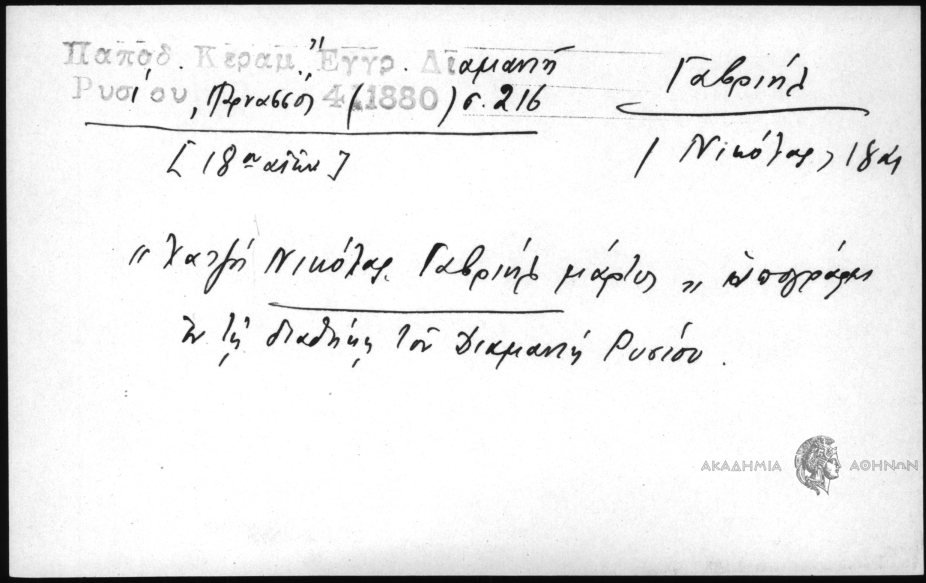 Παπαδ. Κεραμ. "Έγγρ. Διαμαντῆ
Ρυσίου", Παρνασσός, 4 (1880) σ. 216
Γαβριήλ
[18ος αἰών]
/ Νικόλας, 18 αἰ
"Χατζῆ Νικόλας Γαβριήλ μάρτυς" ὑπογράφει
ἐν τῇ διαθήκῃ τοῦ Διαμαντῆ Ρυσίου.
ΑΚΑΔΗΜΙΑ ΑΘΗΝΩΝ